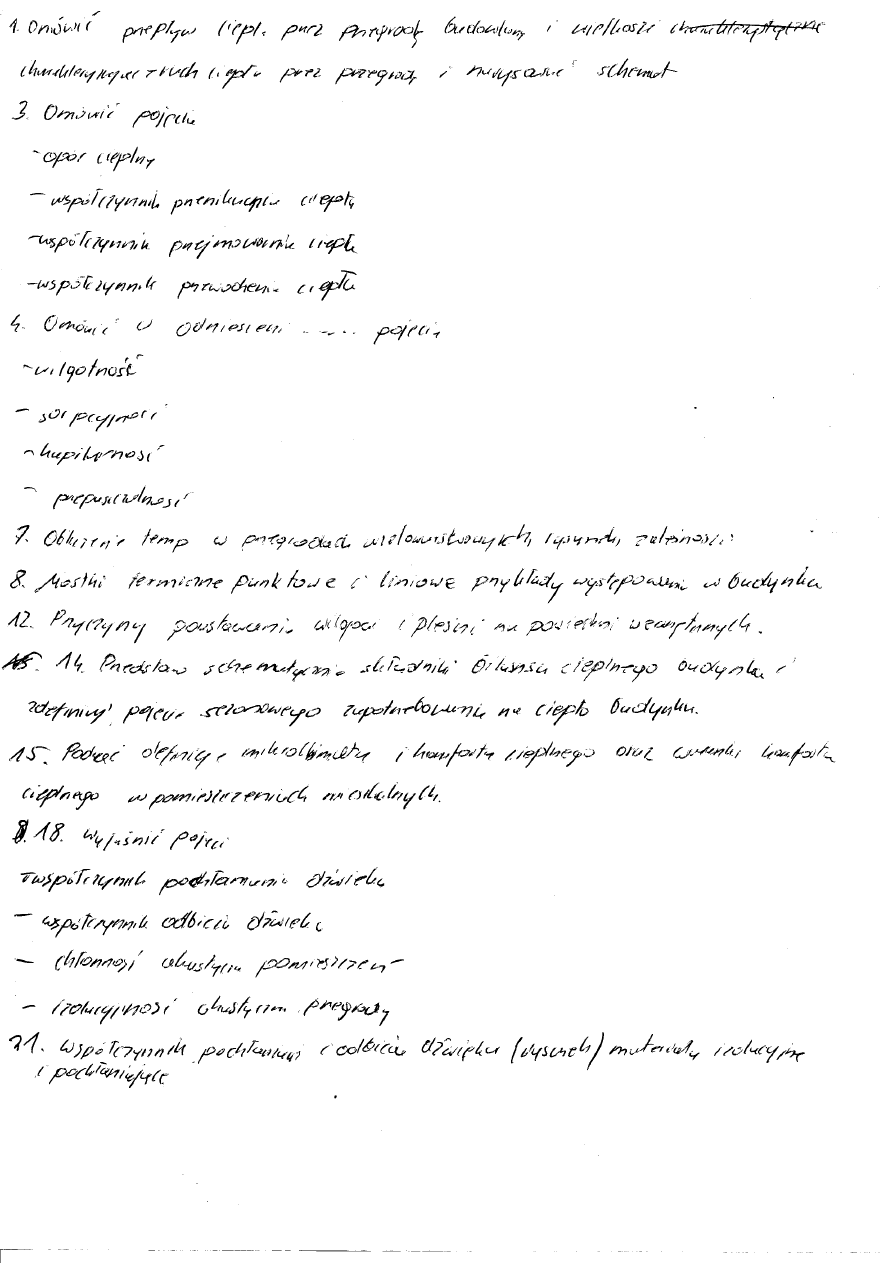 1. Omówić przepływ ciepł. przez przegrodę budowlaną i wielkości charakterystyczne
charakteryzujące ruch ciepła przez przegrody i narysować schemat
3. Omówić pojęcia
- opór cieplny
- współczynnik przenikania ciepła
- współczynnik przejmowania ciepła
- współczynnik przewodzenia ciepła
4. Omówić w odniesieniu ..... pojęcia
- wilgotność
- sorpcyjność
- kapilarność
- przepuszczalność
7. Obliczenie temp w przegrodach wielowarstwowych, rysunek, zależności
8. Mostki termiczne punktowe i liniowe przykłady występowania w budynku
12. Przyczyny powstawania wilgoci i pleśni na powierzchni wewnętrznych.
14. Przedstaw schematycznie składniki bilansu cieplnego budynku i
zdefiniuj pojęcie sezonowego zapotrzebowania na ciepło budynku.
15. Podać definicję mikroklimatu i komfortu cieplnego oraz warunki komfortu
cieplnego w pomieszczeniach mieszkalnych.
18. Wyjaśnić pojęci
- współczynnik pochłaniania dźwięku
- współczynnik odbicia dźwięku
- chłonność akustyczn pomieszczeń
- izolacyjność akustyczn przegrody
21. Współczynnik pochłaniani i odbicia dźwięku (rysunek) materiały izolacyjne
i pochłaniające